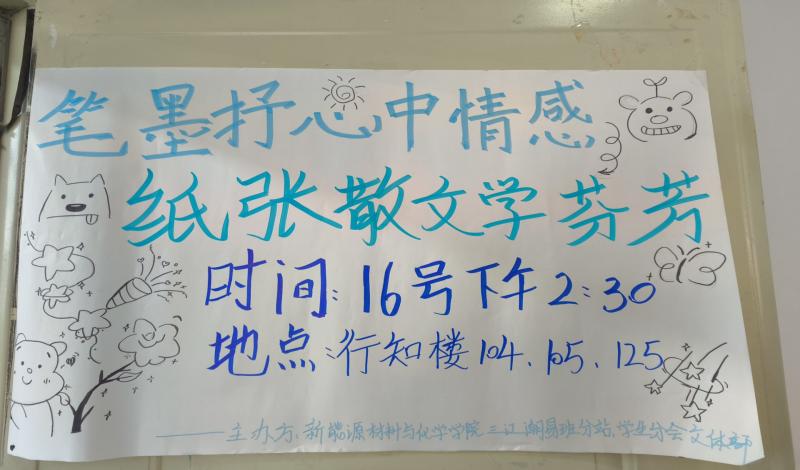 笔墨抒心中情感
纸张散文学芬芳
时间:16号下午2:30
地点:行知楼104、105、125
——主办方:新能源材料与化学学院三江潮易班分站、学生分会文体部